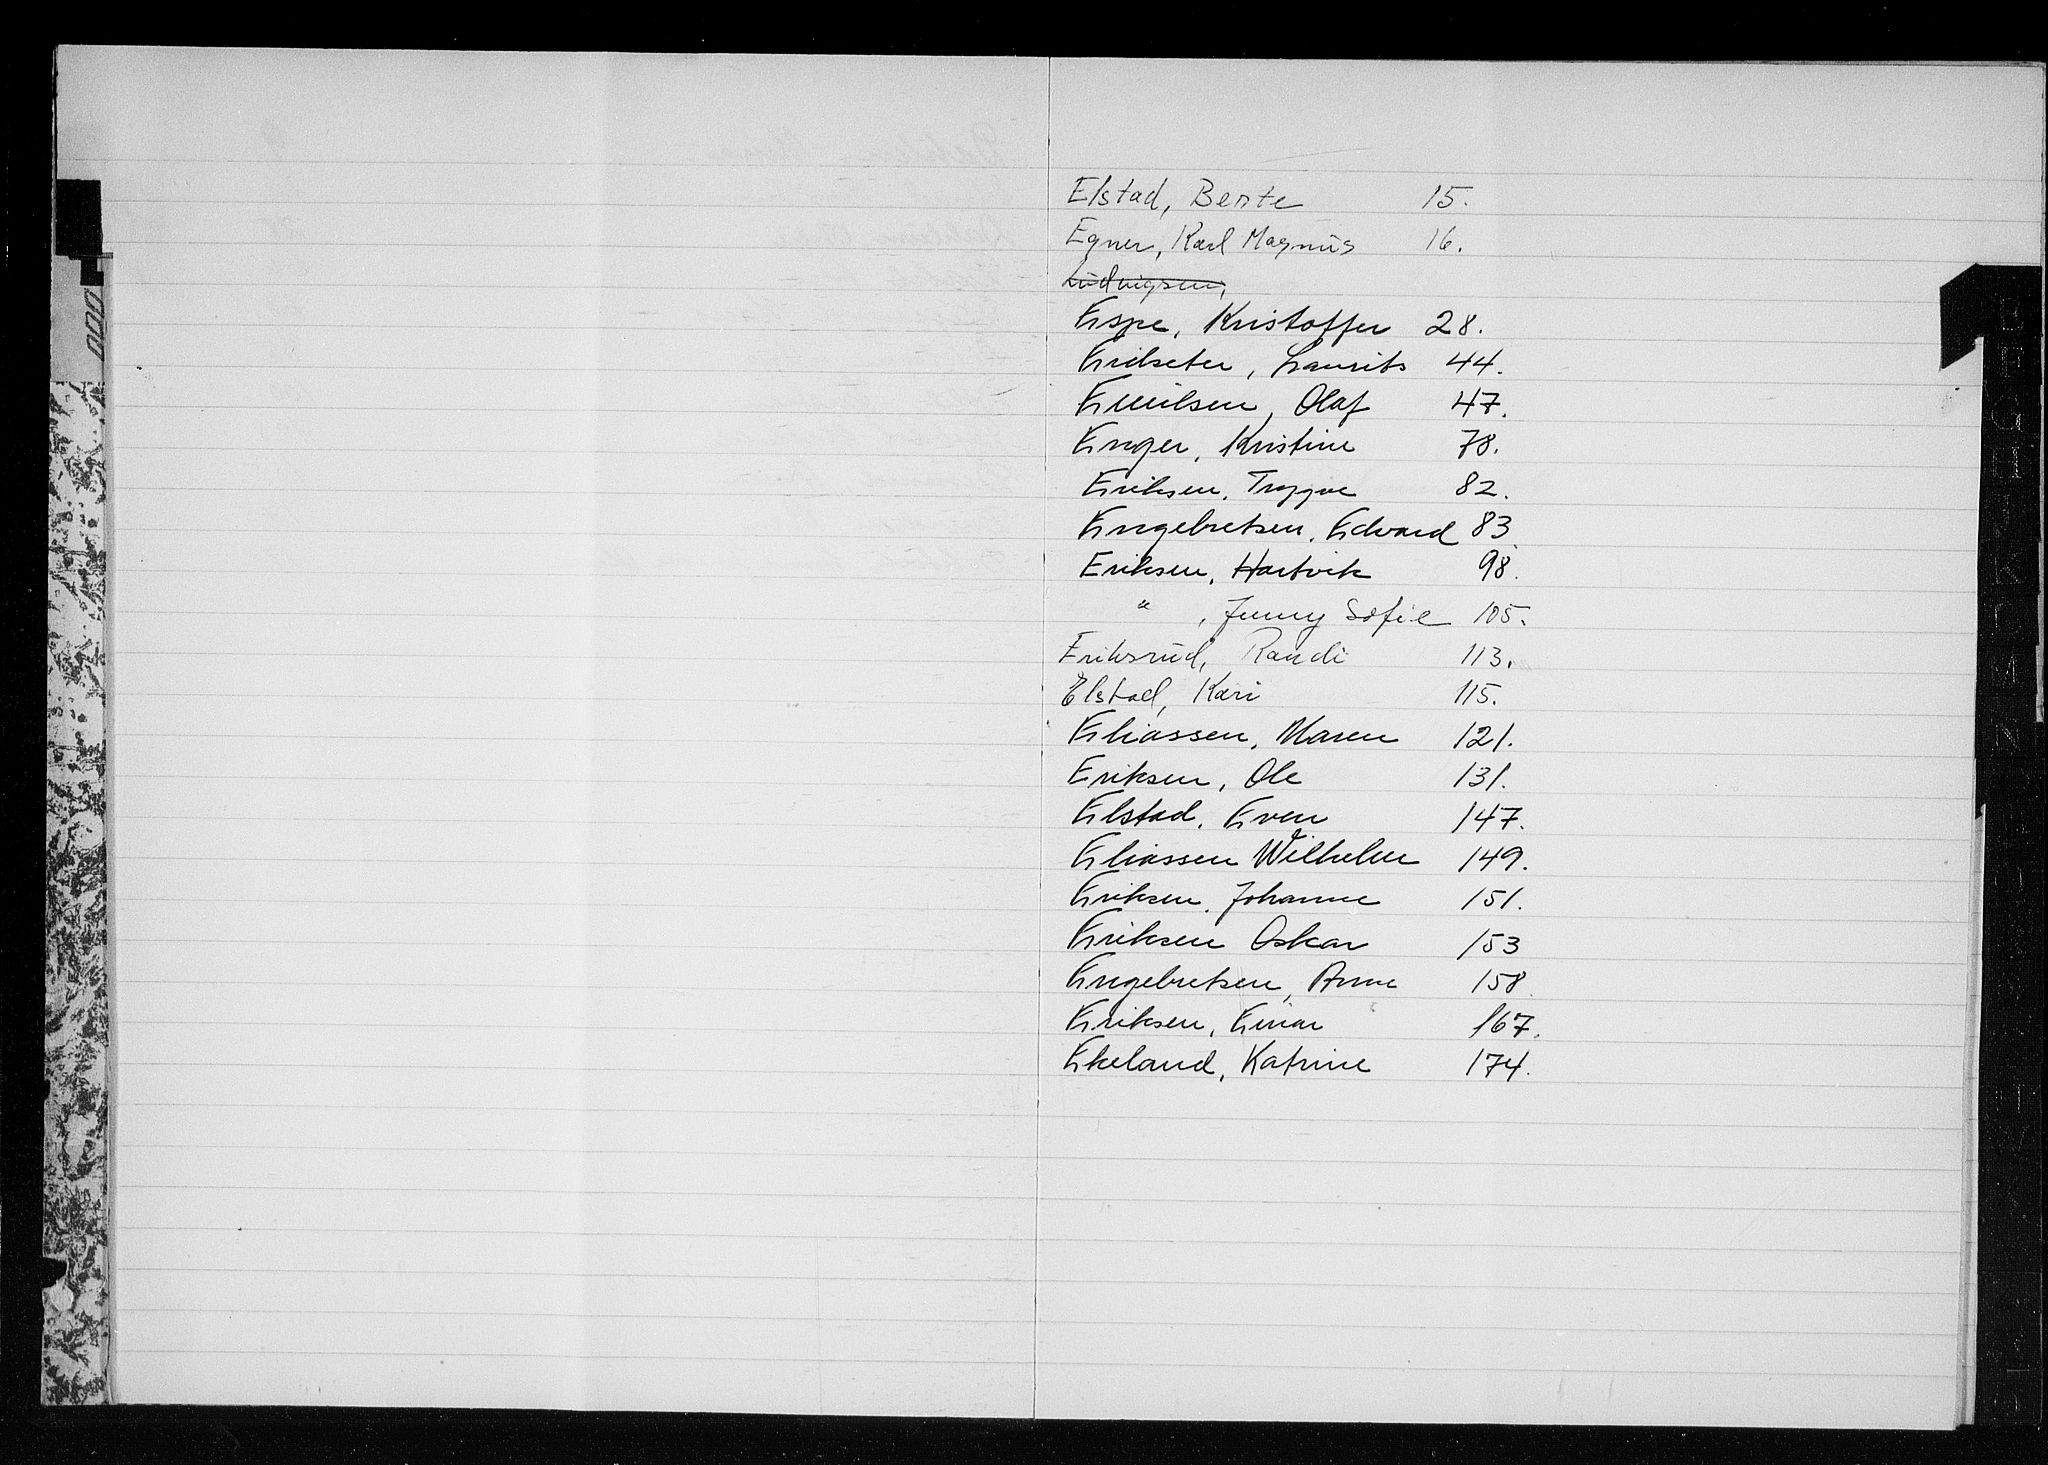 Elstad, Berte 15.
Egner, Karl Magnus 16.
Ludvigsen,
Espe, Kristoffer 28.
Erikseter, Laurits 44.
Emilsen, Olaf 47.
Enger, Kristine 78.
Eriksen, Trygve 82.
Engebretsen, Edvard 83
Eriksen, Hartvik 98.
" , Jenny Sofie 105.
Eriksrud, Randi 113.
Elstad, Kari 115.
Eliassen, Maren 121.
Eriksen, Ole 131.
Elstad, Even 147.
Eliassen Wilhelm 149.
Eriksen, Johanne 151.
Eriksen Oskar 153
Engebretsen, Anne 158.
Eriksen, Einar 167.
Ekeland, Katrine 174.